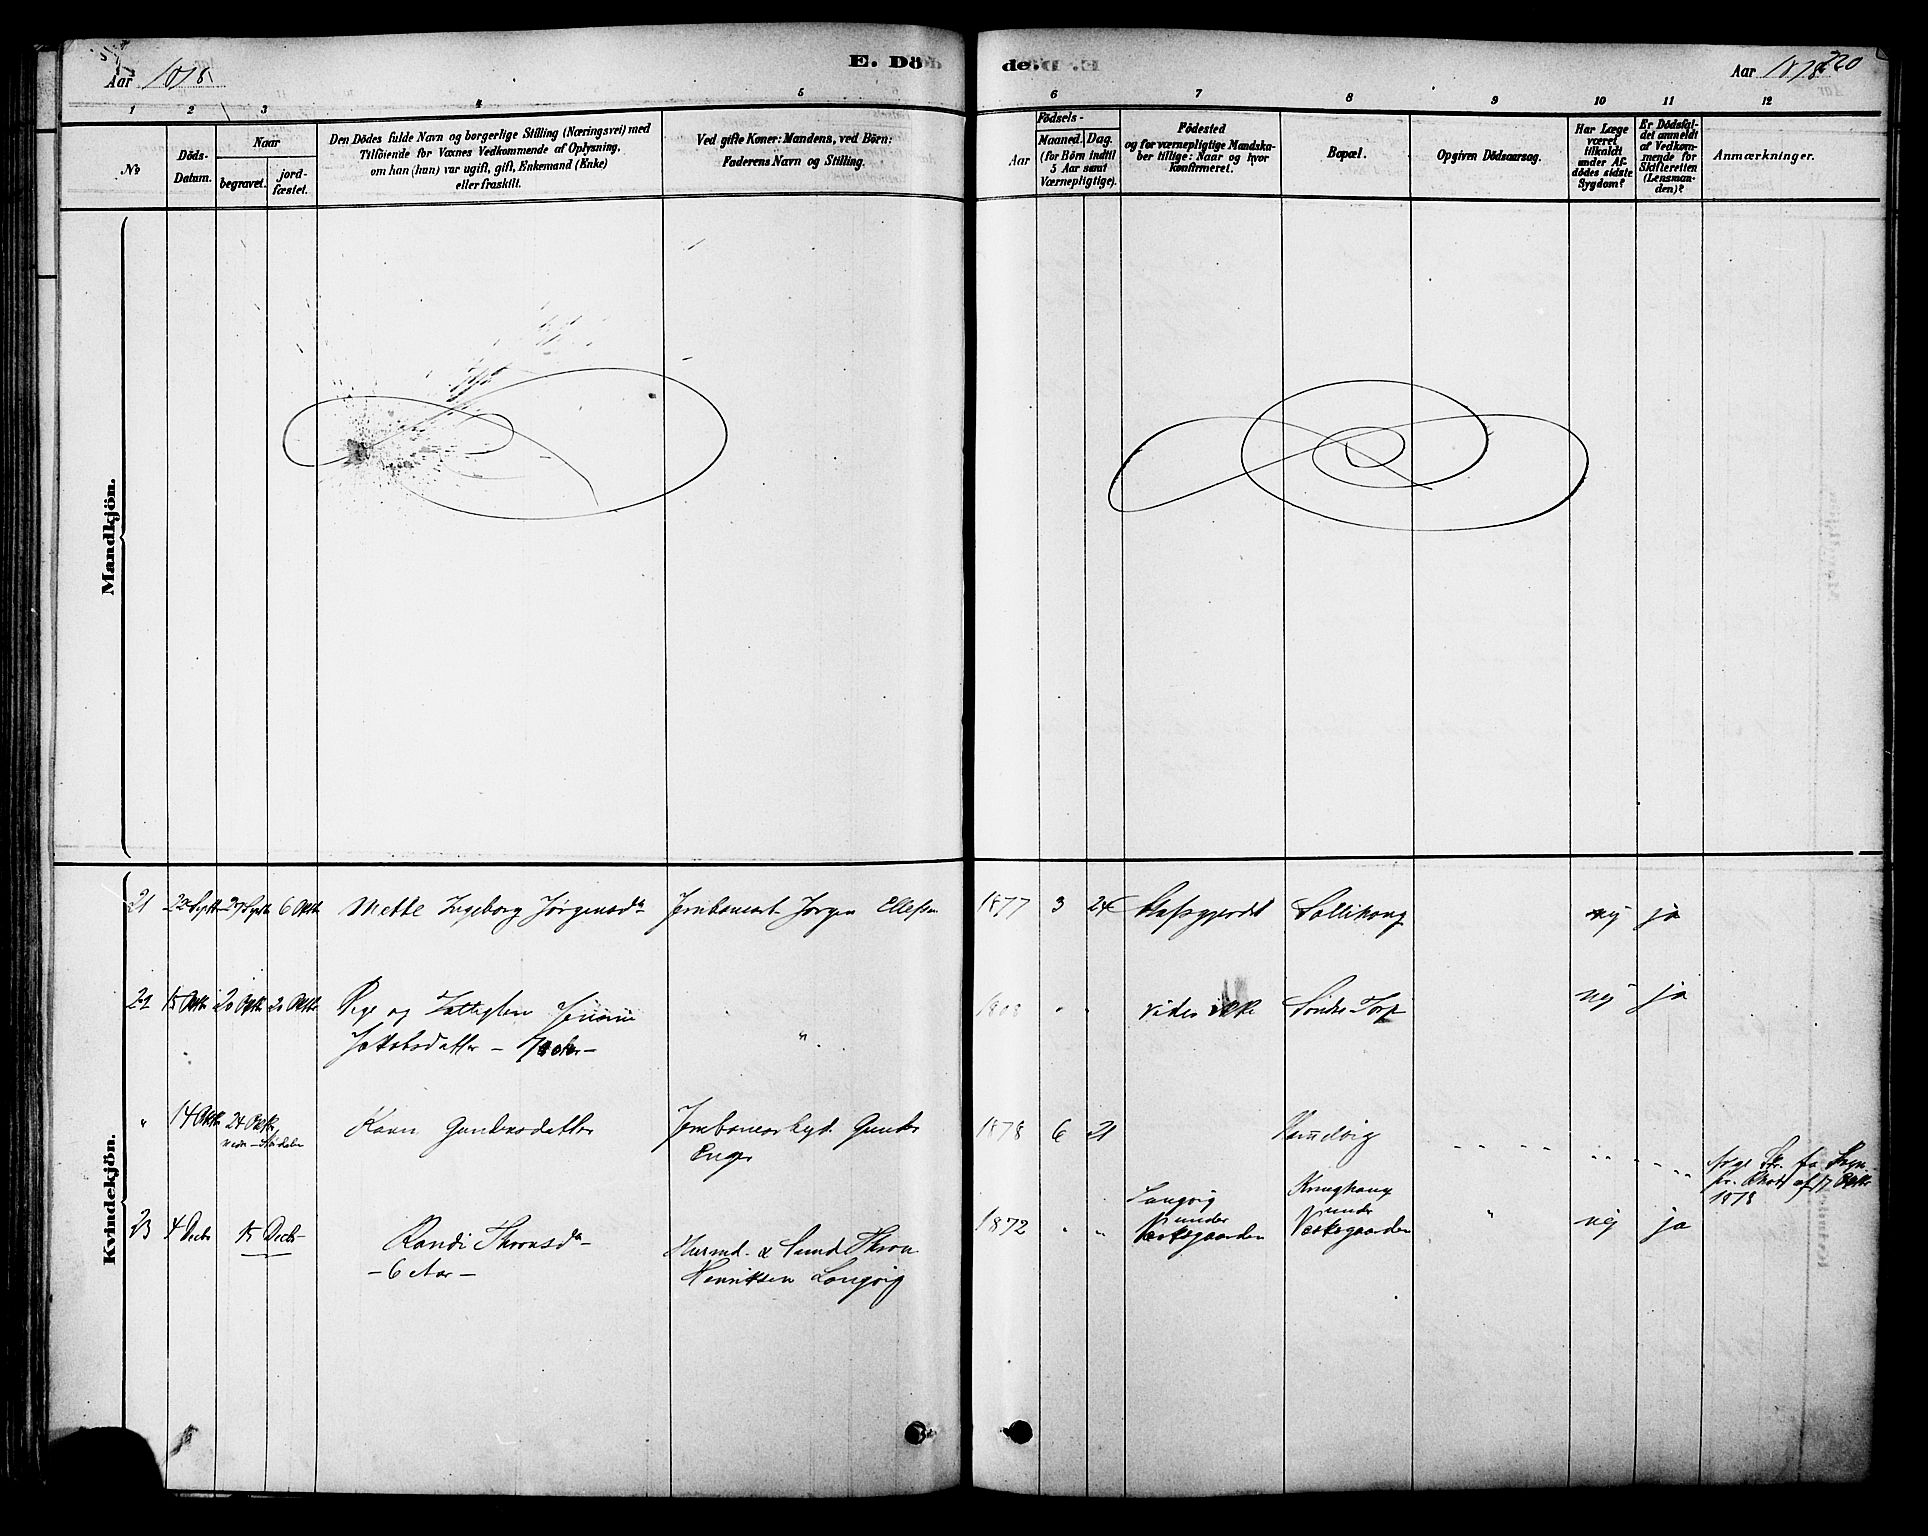 Aar 1878
E. Dö
de.
Aar 1878
220
1 2 3 4 5 6 7 8 9 10 11 12
No
Döds-
Datum.
Naar
begravet.
jord-
fæstet.
Den Dödes fulde Navn og borgerlige Stilling (Næringsvei) med
Tilföiende for Voxnes Vedkommende af Oplysning,
om han (hun) var ugift, gift, Enkemand (Enke)
eller fraskilt.
Ved gifte Koner: Mandens, ved Börn:
Faderens Navn og Stilling.
Födsels-
Aar
Maaned. Dag.
(for Börn indtil
5 Aar samt
Værnepligtige).
Födested
og for værnepligtige Mandska-
ber tillige: Naar og hvor
Konfirmeret.
Bopæl.
Opgiven Dödsaarsag.
Har Læge
været
tilkaldt
under Af-
dödes sidste
Sygdom?
Er Dödsfal-
det anmeldt
af Vedkom-
mende for
Skifteretten
(Lensman-
den)?
Anmærkninger.
Mandkjön.
Kvindekjön.
21 22 Sept 27 Sept 6 Okt Mette Ingeborg Jørgensda Jernbanearb. Jørgen Ellefsen 1877 3 24 nej ja
22 18 Okt 20 Okt 20 Okt Pige og Fattiglem
Jakobsdatter 1808 " " vides ikke Søndre Torp nej ja
" 14 Okt 24 Okt Karen Gundersdatter Jernbanearbejd. Gunder
Enger 1878 6 21
1878
23 4 Decbr 15 Decbr Randi Thronsda
- 6 Aar -
Husmd. Thron
Henriksen Langvig 1872 " " Langvig
under
Værksgaarden
under
Værksgaarden " nej ja